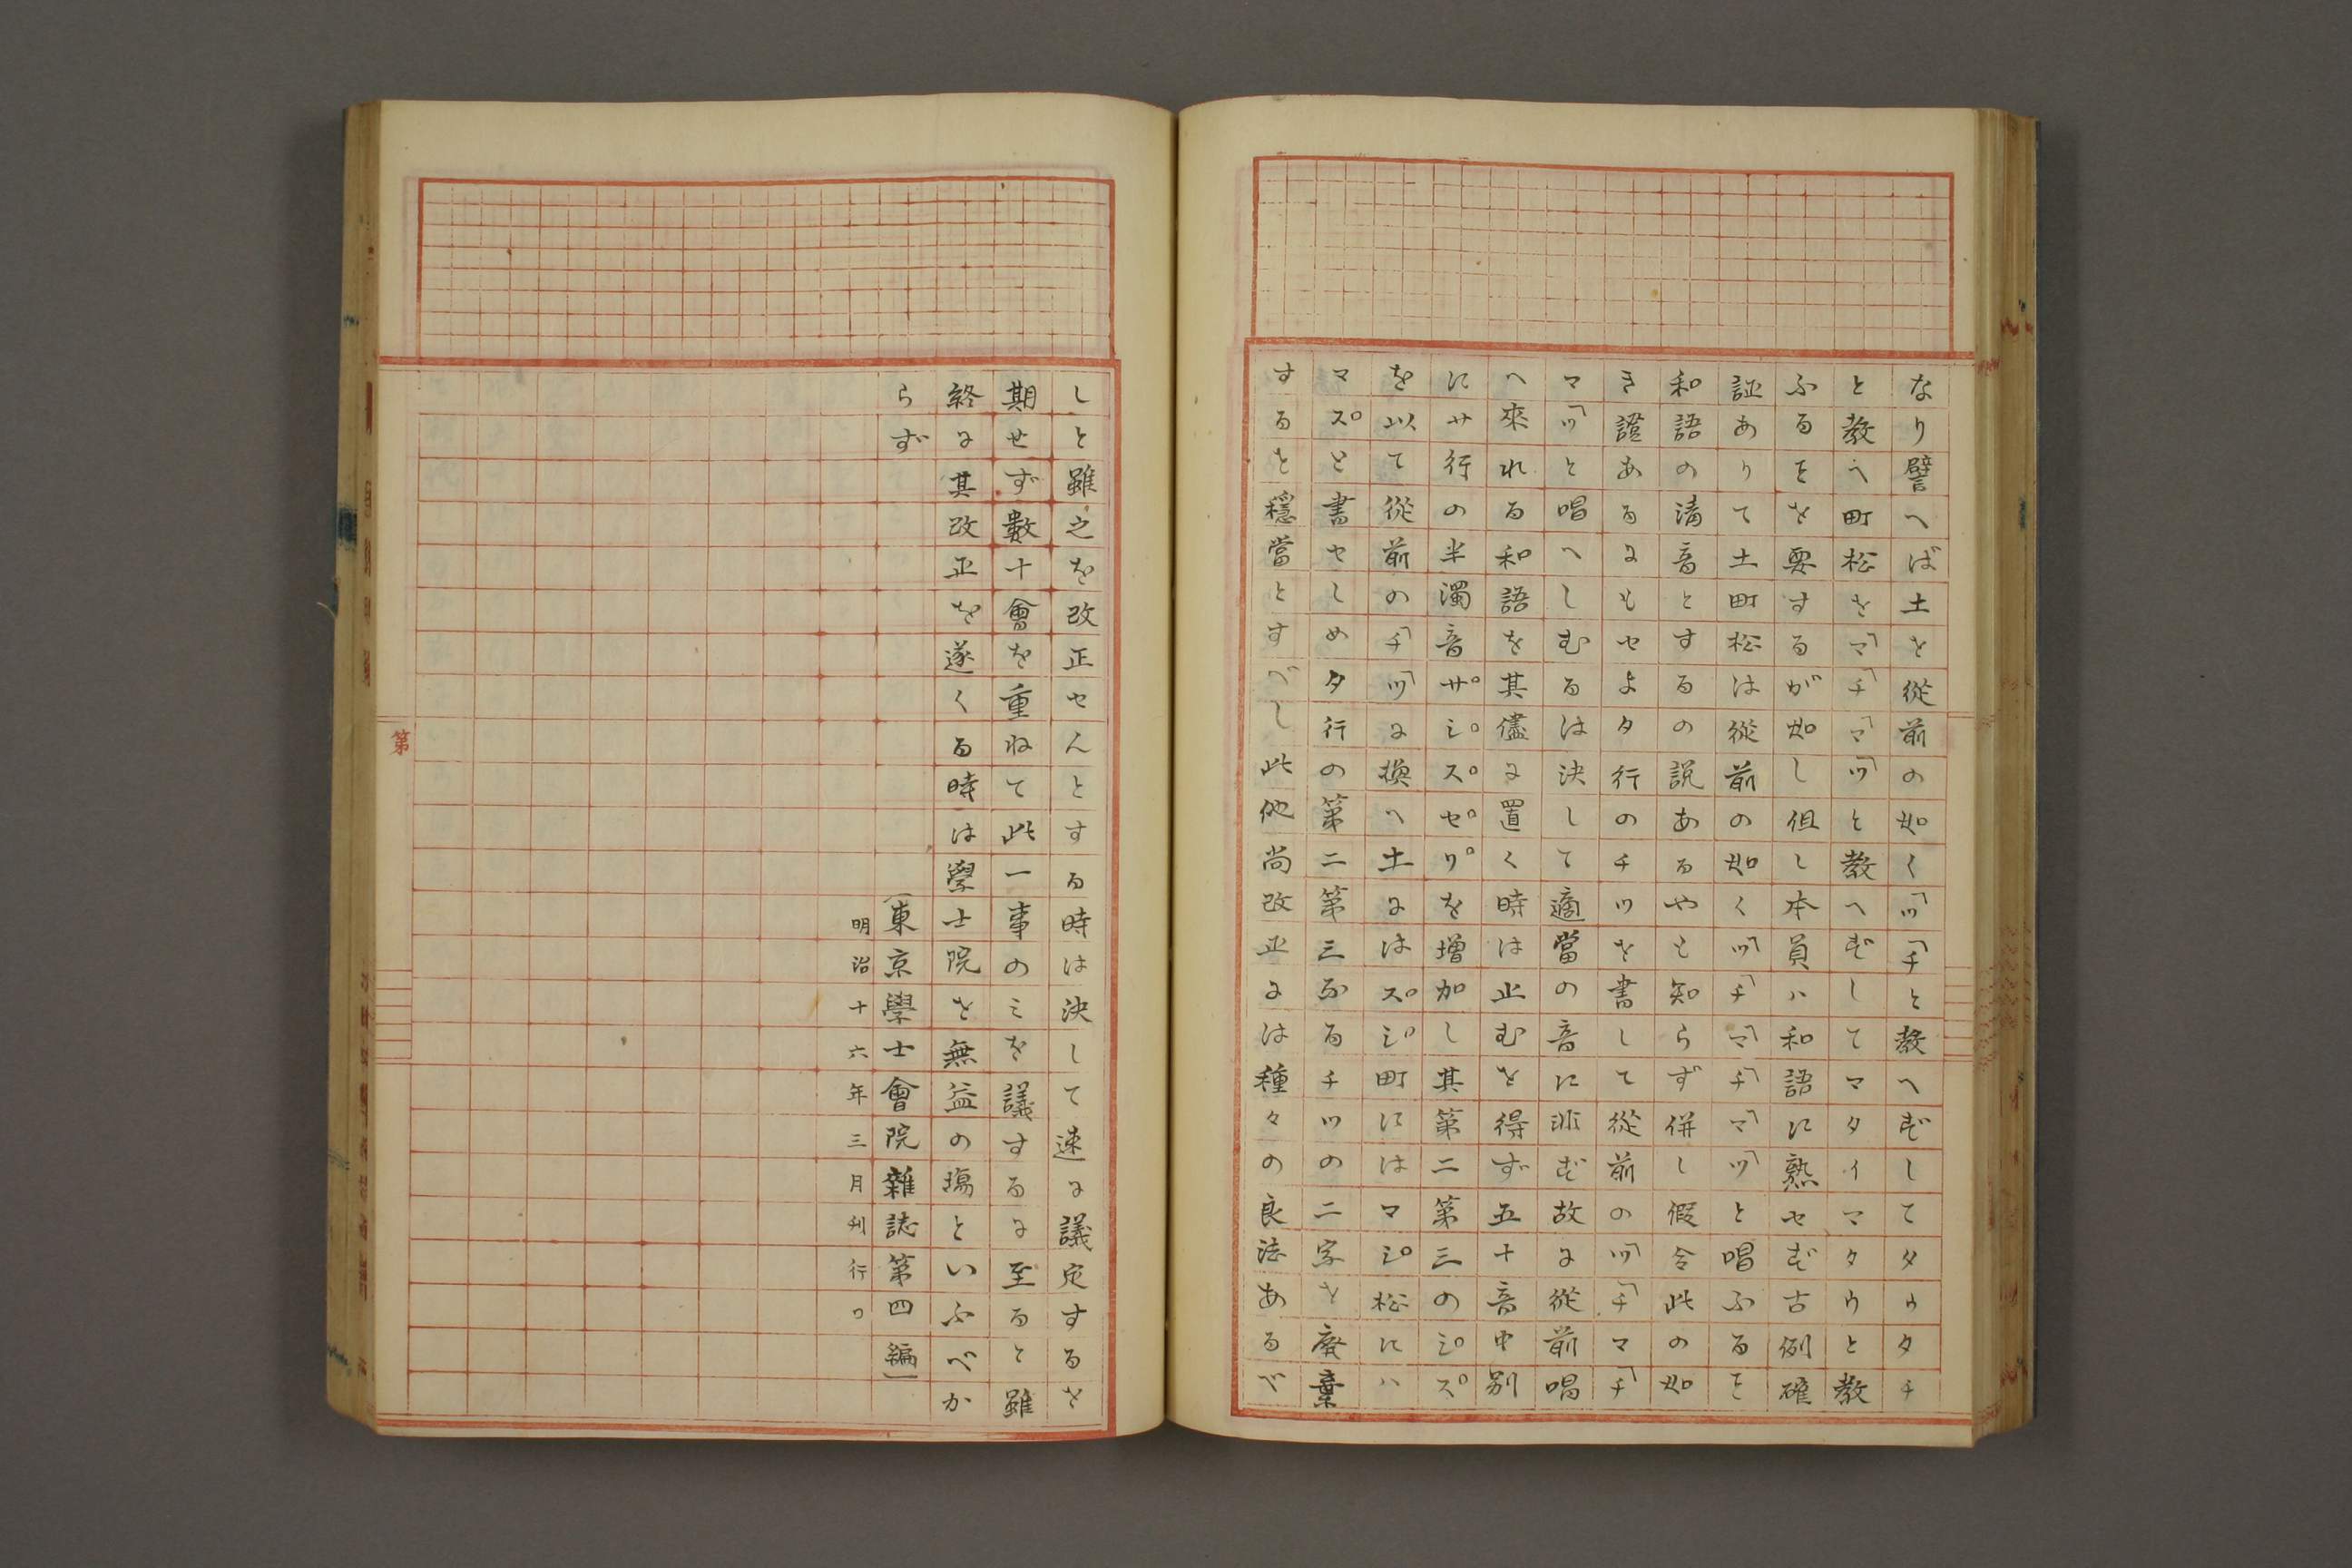 なり譬へば土を從前の如く「ツ「チと教へずしてタゥタチ
と教へ町松を「マ「チ「マ「ツと教へずしてマタイマタウと教
ふるをを要するが如し但し本員ハ和語に熟せず古例確
証ありて土町松は從前の如く「ツ「チ「マ「チ「マ「ツと唱ふるを
和語の淸音とするの説あるやも知らず併し假令此の如
き證あるにもせよタ行のチツを書して從前の「ツ「チマ「チ
マ「ツと唱へしむるは決して適當の音に非ず故に從前唱
へ來れる和語を其儘に置く時は止むを得ず五十音中別
にサ行の半濁音サ゚シ゚ス゚セ゚ソ゚を增加し其第二第三のシ゚ス゚
を以て從前の「チ「ツに換へ土にはス゚シ゚町にはマシ゚松にハ
マス゚と書せしめタ行の第二第三なるチツの二字を廢棄
するを穩當とすべし此他尚改正には種々の良法あるべ
しと雖之を改正せんとする時は決して速に議定するを
期せず數十會を重ねて此一事のみを議するに至ると雖
終に其改正を遂くる時は學士院を無益の塲といふべか
らず
(東京學士會院雜誌第四編)
明治十六年三月刊行
第